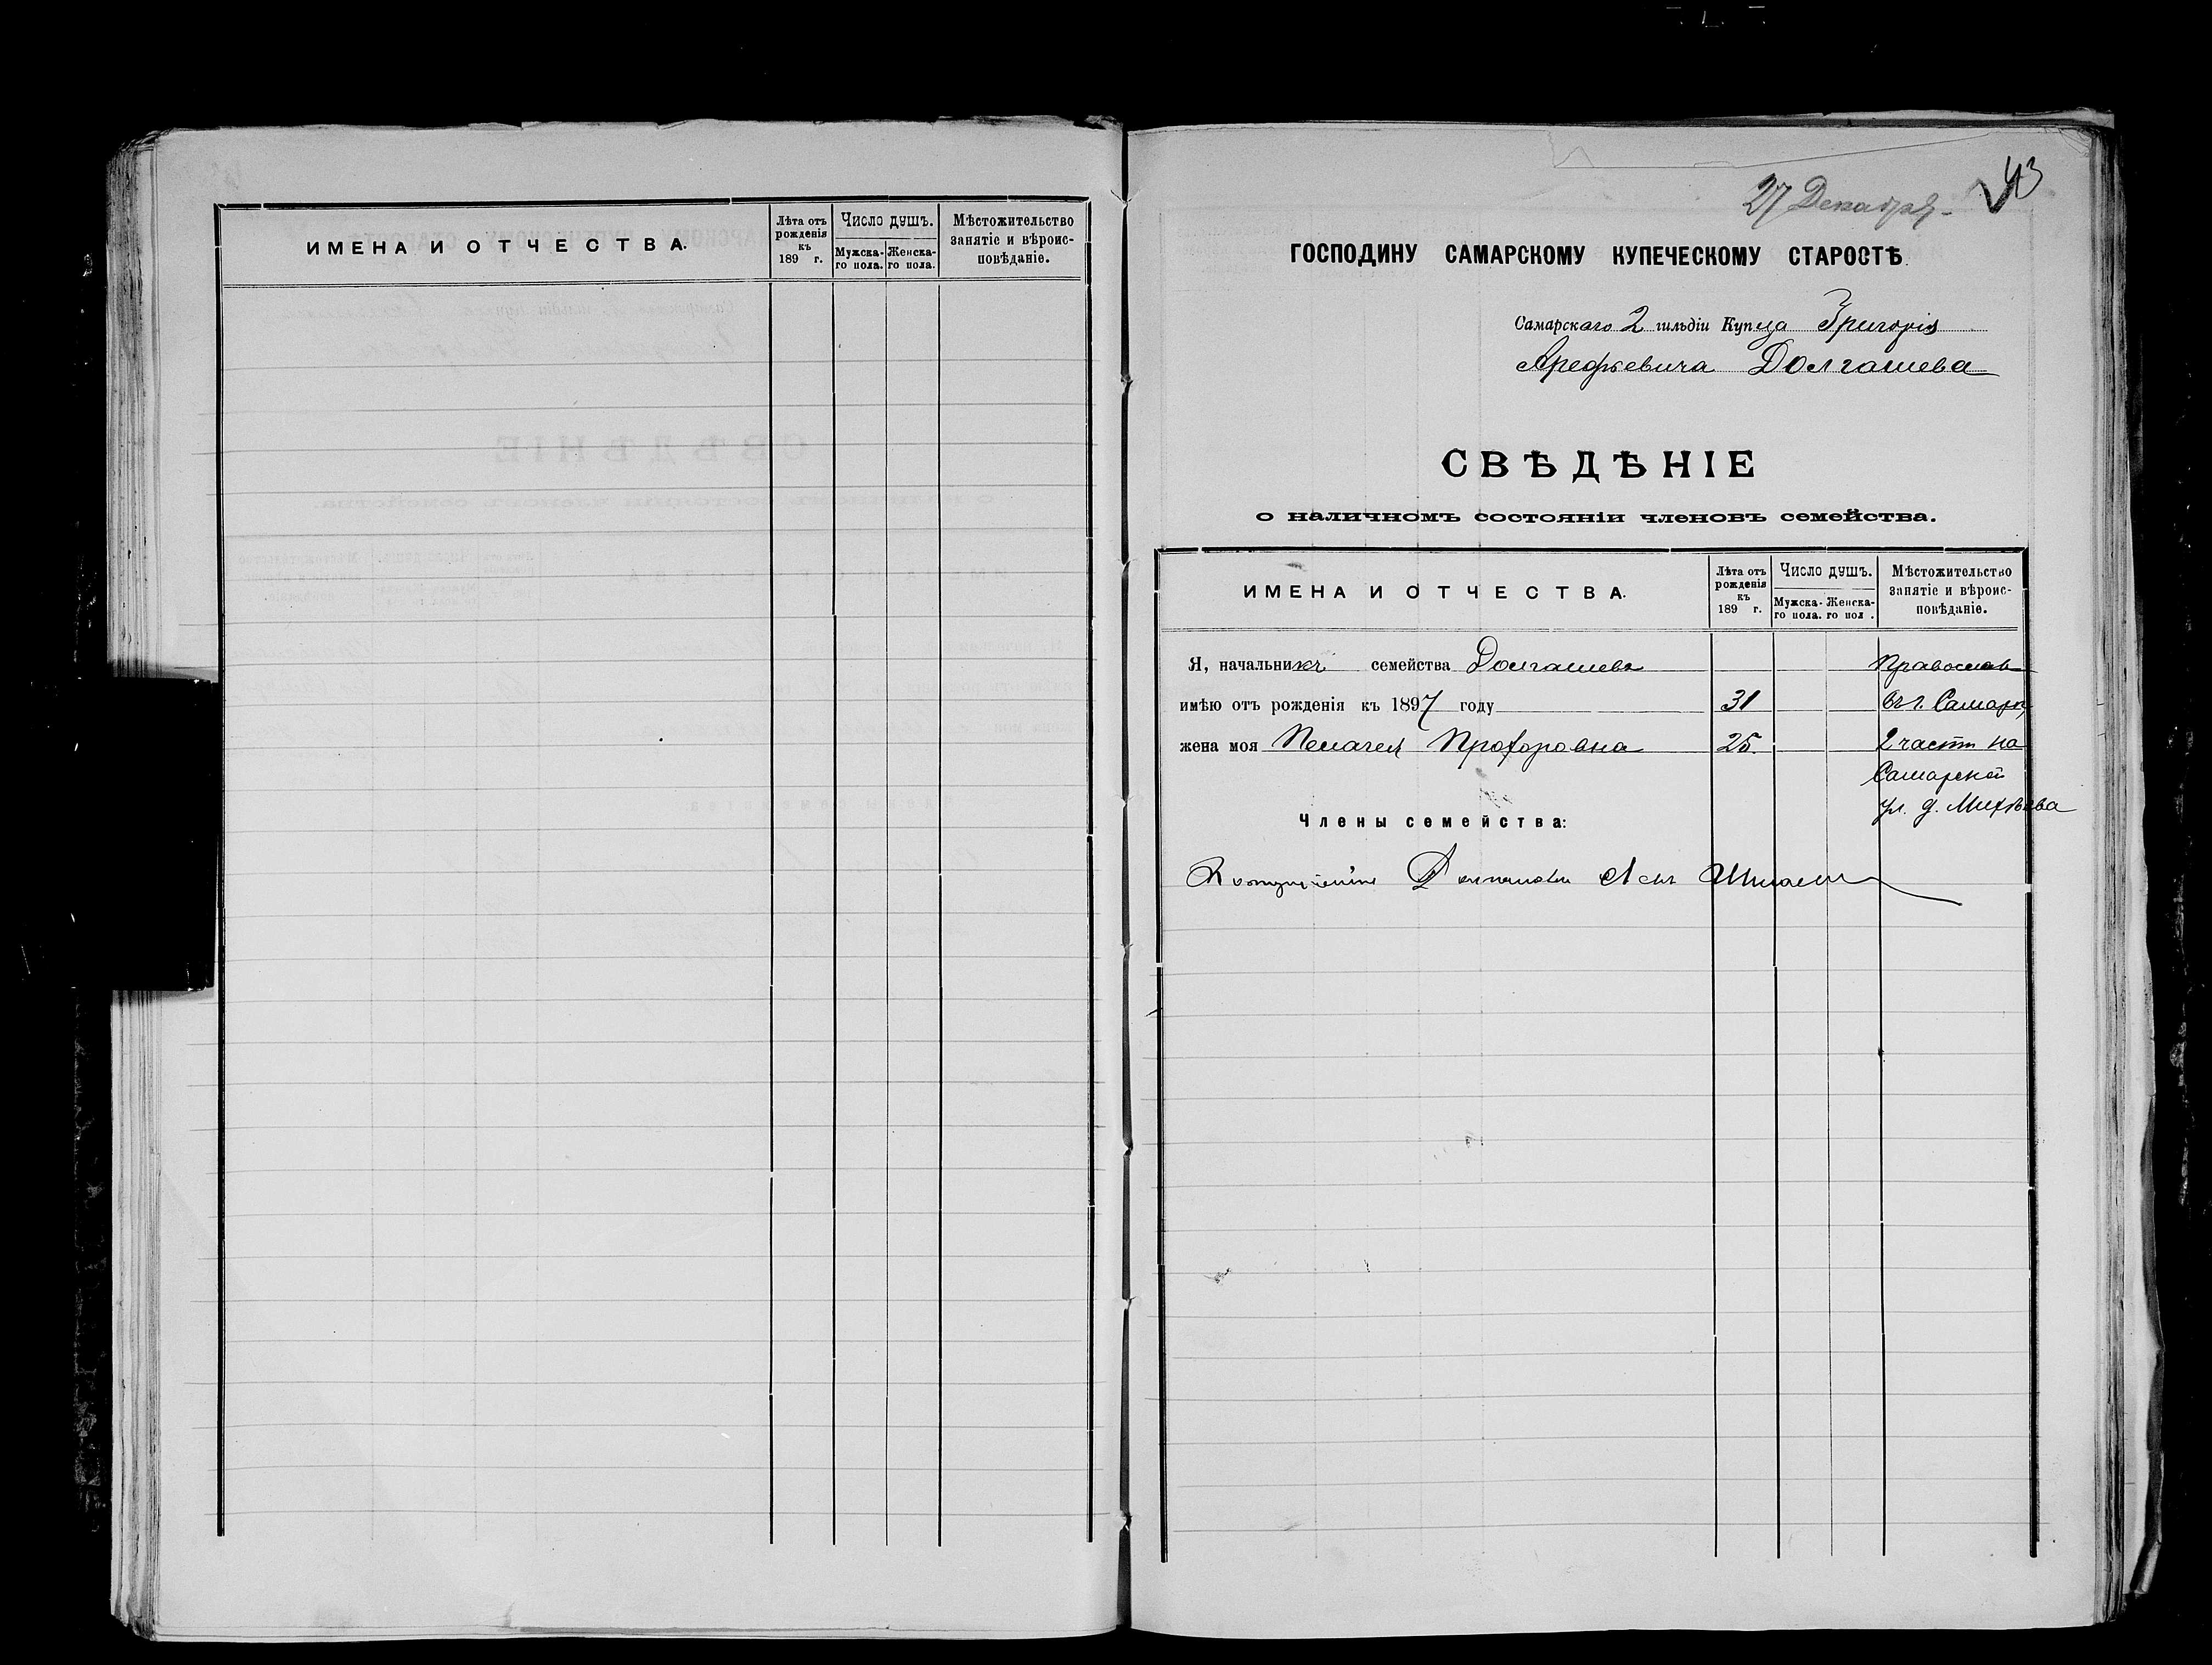 ИМЕНА И ОТЧЕСТВА.
Лѣта отъ рожденія къ 189 г.
Число душъ.
Мужска-го пола.
Женска-го пола.
Мѣстожительство занятіе и вѣроис-повѣданіе.
43
27 Декабря
ГОСПОДИНУ САМАРСКОМУ КУПЕЧЕСКОМУ СТАРОСТѢ
Самарскаго 2 гильдіи Купца Григорія
Арефьевича Долгашева
СВѢДѢНІЕ
о наличномъ состояніи членовъ семейства.
ИМЕНА И ОТЧЕСТВА.
Лѣта отъ рожденія къ 189 г.
Число душъ.
Мужска-го пола.
Женска-го пол .
Мѣстожительство занятіе и вѣроис-повѣданіе.
Я, начальникъ семейства Долгашевъ Православ
имѣю отъ рожденія къ 1897 году 31 въ г. Самарѣ
жена моя Пелагея Прохоровна 25. 2 части на
Самарской
ул. д. Михѣева
Члены семейства: